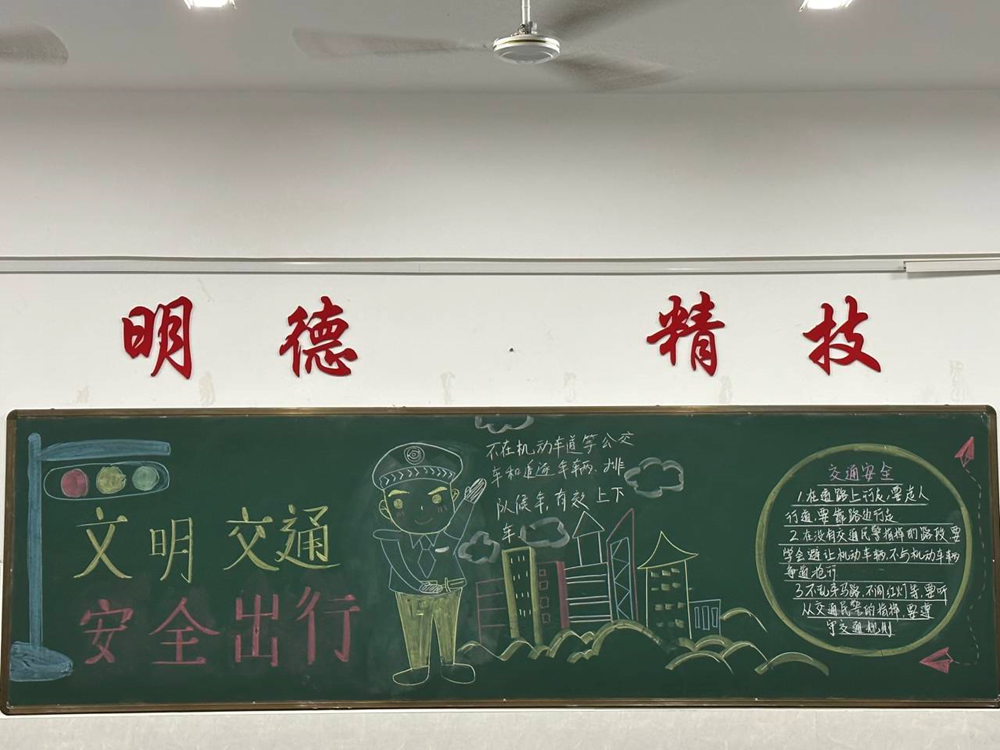 明德 精技
文明交通
安全出行
不在机动车道等公交
车和追逐车辆.排
队候车,有效上下
车
交通安全
1.在道路上行走,要走人
行道,要靠路边行走
2.在没有交通民警指挥的路段,要
学会避让机动车辆,不与机动车辆
争道抢行
3.不乱穿马路,不闯红灯等,要听
从交通民警的指挥,要遵
守交通规则